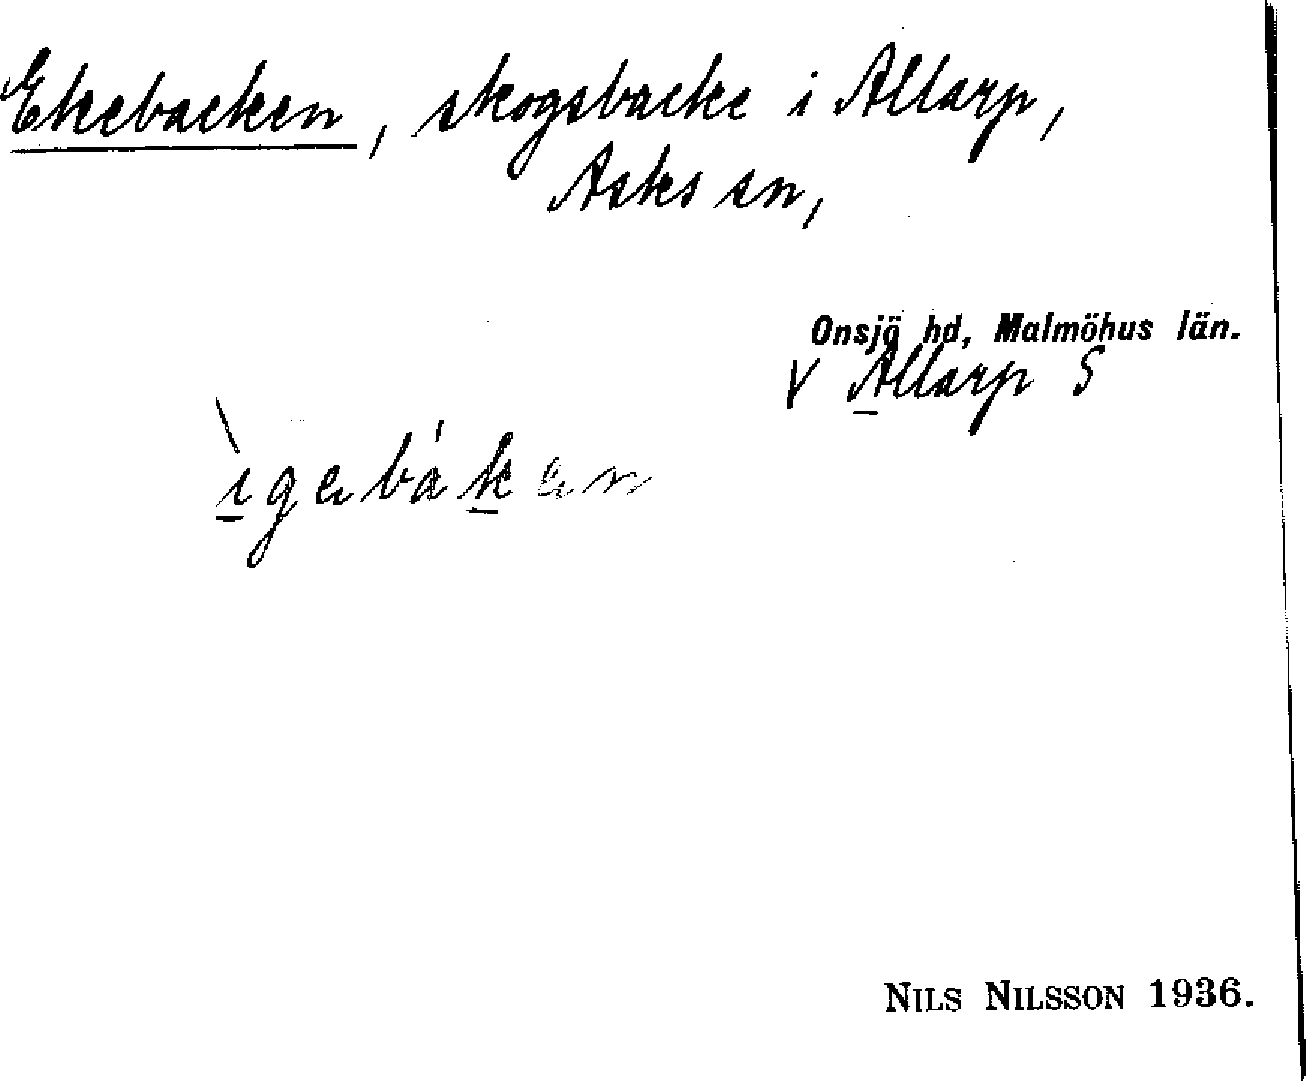 Ekebacken, skogsbacke i Allarp,
Asks sn,
Onsjö hd, Malmöhus län.
V Allarp S
ìgabákan
NILS NILSSON 1936.